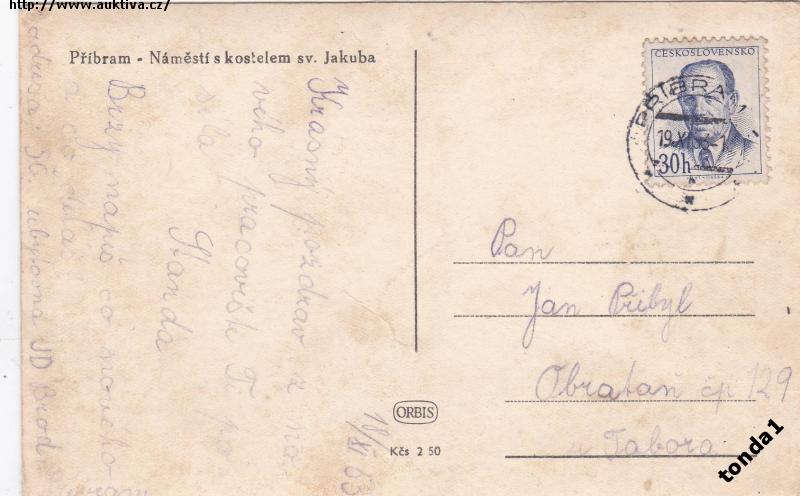 http://www.auktiva.cz/
Příbram - Náměstí s kostelem sv. Jakuba
Krásný pozdrav z no
vého pracoviště Ti
Standa
Brzy napiš co nového
a co děláš.
ubytovna JD Brod
18/XI 53
ORBIS
Kčs 2 50
ČESKOSLOVENSKO
30h
PŘÍBRAM 1
19.XI.53
Pan
Jan Přibyl
Obrataň čp 129
u Tábora
tonda1